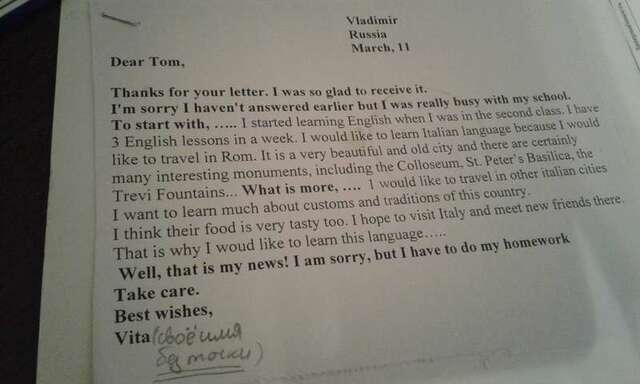 Vladimir
Russia
March, 11
Dear Tom,
Thanks for your letter. I was so glad to receive it.
I'm sorry I haven't answered earlier but I was really busy with my school.
To start with, ….. I started learning English when I was in the second class. I have
3 English lessons in a week. I would like to learn Italian language because I would
like to travel in Rom. It is a very beautiful and old city and there are certainly
many interesting monuments, including the Colloseum, St. Peter's Basilica, the
Trevi Fountains... What is more, …. I would like to travel in other italian cities
I want to learn much about customs and traditions of this country.
I think their food is very tasty too. I hope to visit Italy and meet new friends there.
That is why I woud like to learn this language…..
Well, that is my news! I am sorry, but I have to do my homework
Take care.
Best wishes,
Vita (своё имя
без точки)